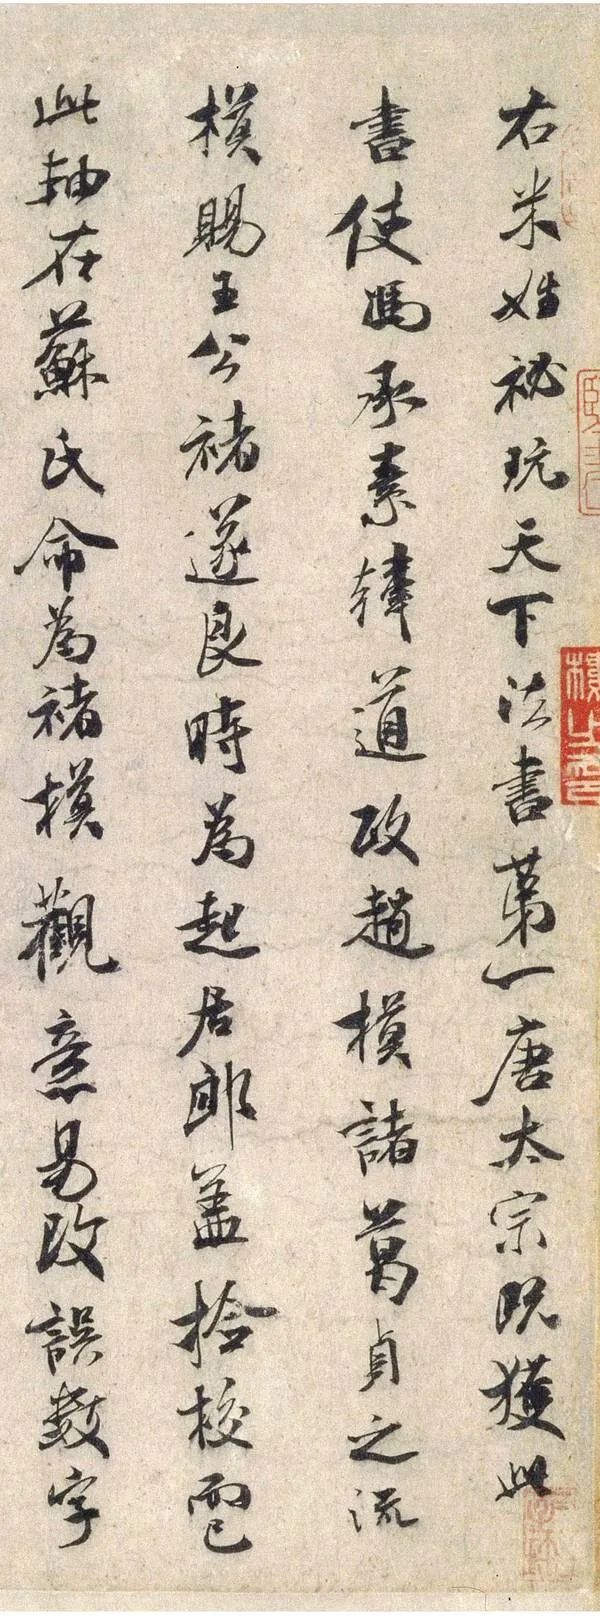 右米姓祕玩天下法書第一唐太宗既獲此
書使馮承素韓道政趙模諸葛貞之流
模賜王公褚遂良時為起居郎蓋撿校而已
此軸在蘇氏命為褚模觀意易改誤數字